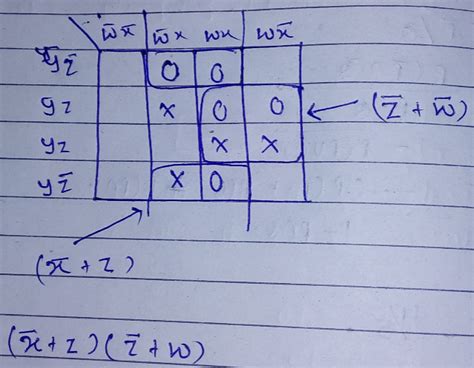 w̄x̄ w̄x wx wx̄
ȳz̄ 0 0
yz x 0 0 (z̄ + w̄)
yz x x
yz̄ x 0
(x̄ + z)
(x̄+z)(z̄+w)